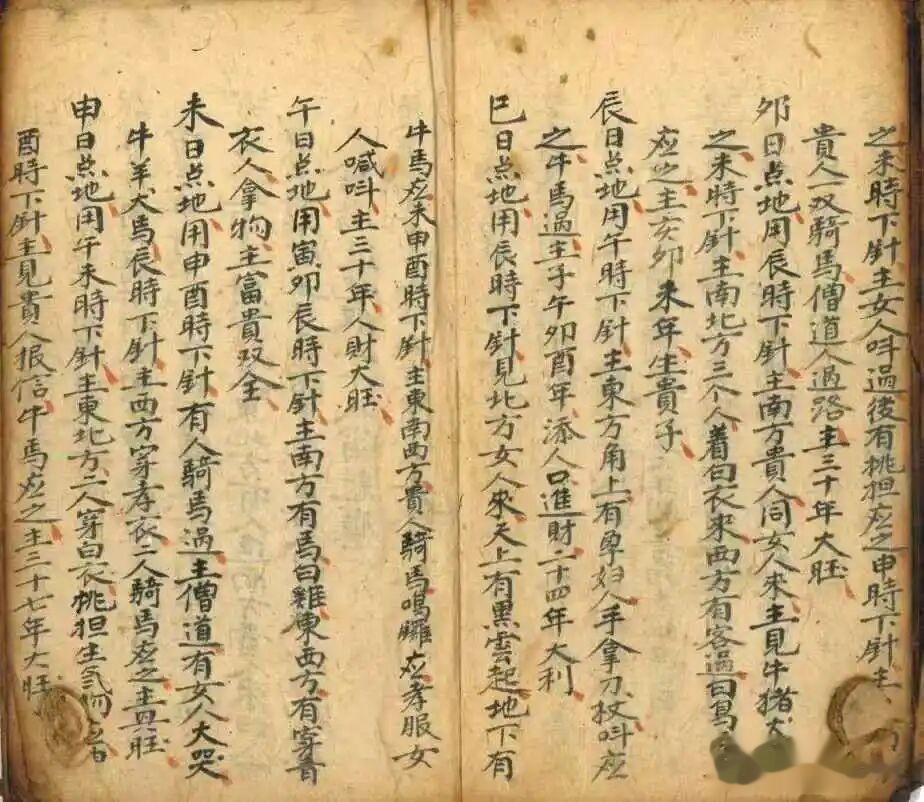 之未時下針主女人呌過後有挑担应之申時下針主
貴人一双騎馬僧道人過路主三十年大旺
夘日点地用辰時下針主南方貴人同女人來主見牛猪犬
之未時下針主南北方三个人着白衣來西方有客過白馬
应之主亥夘未年生貴子
辰日点地用午時下針主東方角上有尊妇人手拿刀杖呌应
之牛馬過主子午夘酉年添人口進財二十四年大利
巳日点地用辰時下針見北方女人來天上有黑雲起地下有
牛馬应未申酉時下針主東南西方貴人騎馬鳴鑼应孝服女
人喊呌主三十年人財大旺
午日点地用寅夘辰時下針主南方有馬白雞東西方有穿青
衣人拿物主富貴双全
未日点地用申酉時下針有人騎馬過主僧道有女人大哭
牛羊犬馬辰時下針主西方穿孝衣二人騎馬应之主興旺
申日点地用午未時下針主東北方二人穿白衣挑担生气物
酉時下針主見貴人报信牛馬应之主三十七年大旺